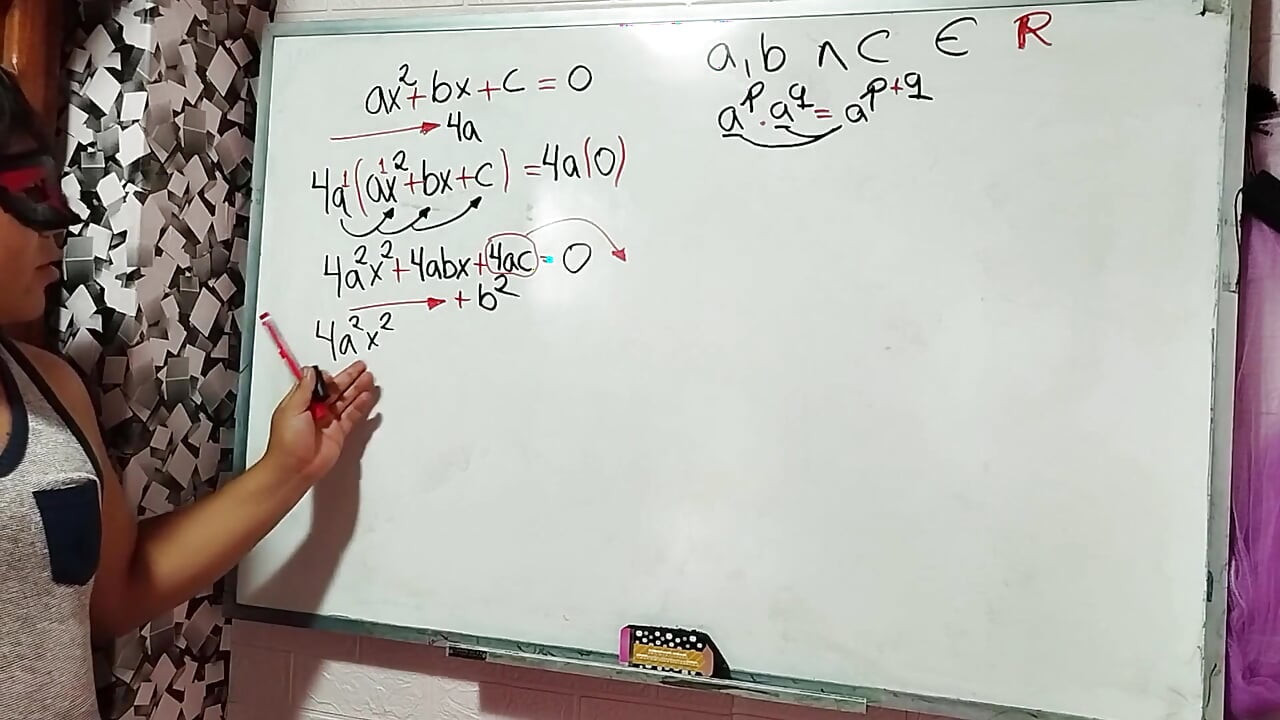 ax²+bx+c=0
4a
4a¹(a¹x²+bx+c)=4a(0)
4a²x²+4abx+4ac=0
+b²
4a²x²
a,b ∧ C ∈ R
a^p·a^q=a^p+q